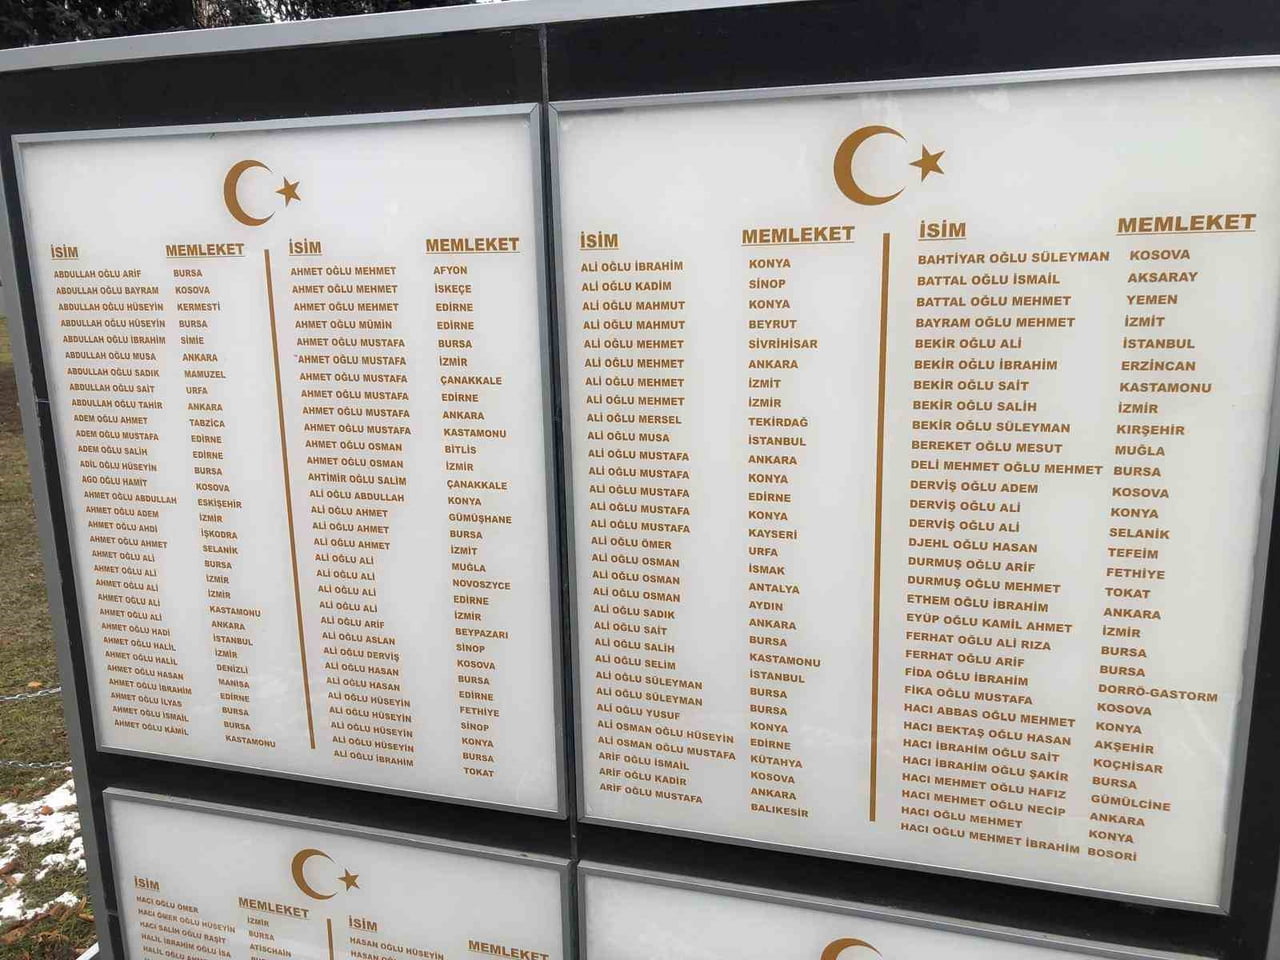 İSİM MEMLEKET
ABDULLAH OĞLU ARİF BURSA
ABDULLAH OĞLU BAYRAM KOSOVA
ABDULLAH OĞLU HÜSEYİN KERMESTİ
ABDULLAH OĞLU HÜSEYİN BURSA
ABDULLAH OĞLU İBRAHİM SİMİE
ABDULLAH OĞLU MUSA ANKARA
ABDULLAH OĞLU SADIK MAMUZEL
ABDULLAH OĞLU SAİT URFA
ABDULLAH OĞLU TAHİR ANKARA
ADEM OĞLU AHMET TABZİCA
ADEM OĞLU MUSTAFA EDİRNE
ADEM OĞLU SALİH EDİRNE
ADİL OĞLU HÜSEYİN BURSA
AGO OĞLU HAMİT KOSOVA
AHMET OĞLU ABDULLAH ESKİŞEHİR
AHMET OĞLU ADEM İZMİR
AHMET OĞLU AHDİ İŞKODRA
AHMET OĞLU AHMET SELANİK
AHMET OĞLU ALİ BURSA
AHMET OĞLU ALİ İZMİR
AHMET OĞLU ALİ İZMİR
AHMET OĞLU ALİ KASTAMONU
AHMET OĞLU ALİ ANKARA
AHMET OĞLU HADİ İSTANBUL
AHMET OĞLU HALİL İZMİR
AHMET OĞLU HALİL DENİZLİ
AHMET OĞLU HASAN MANİSA
AHMET OĞLU İBRAHİM EDİRNE
AHMET OĞLU İLYAS BURSA
AHMET OĞLU İSMAİL BURSA
AHMET OĞLU KAMİL KASTAMONU
İSİM MEMLEKET
AHMET OĞLU MEHMET AFYON
AHMET OĞLU MEHMET İSKEÇE
AHMET OĞLU MEHMET EDİRNE
AHMET OĞLU MÜMİN EDİRNE
AHMET OĞLU MUSTAFA BURSA
AHMET OĞLU MUSTAFA İZMİR
AHMET OĞLU MUSTAFA ÇANAKKALE
AHMET OĞLU MUSTAFA EDİRNE
AHMET OĞLU MUSTAFA ANKARA
AHMET OĞLU MUSTAFA KASTAMONU
AHMET OĞLU OSMAN BİTLİS
AHMET OĞLU OSMAN İZMİR
AHTİMİR OĞLU SALİM ÇANAKKALE
ALİ OĞLU ABDULLAH KONYA
ALİ OĞLU AHMET GÜMÜŞHANE
ALİ OĞLU AHMET BURSA
ALİ OĞLU AHMET İZMİT
ALİ OĞLU ALİ MUĞLA
ALİ OĞLU ALİ NOVOSZYCE
ALİ OĞLU ALİ EDİRNE
ALİ OĞLU ALİ İZMİR
ALİ OĞLU ARİF BEYPAZARI
ALİ OĞLU ASLAN SİNOP
ALİ OĞLU DERVİŞ KOSOVA
ALİ OĞLU HASAN BURSA
ALİ OĞLU HASAN EDİRNE
ALİ OĞLU HÜSEYİN FETHİYE
ALİ OĞLU HÜSEYİN SİNOP
ALİ OĞLU HÜSEYİN KONYA
ALİ OĞLU HÜSEYİN BURSA
ALİ OĞLU İBRAHİM TOKAT
İSİM MEMLEKET
ALİ OĞLU İBRAHİM KONYA
ALİ OĞLU KADİM SİNOP
ALİ OĞLU MAHMUT KONYA
ALİ OĞLU MAHMUT BEYRUT
ALİ OĞLU MEHMET SİVRİHİSAR
ALİ OĞLU MEHMET ANKARA
ALİ OĞLU MEHMET İZMİT
ALİ OĞLU MEHMET İZMİR
ALİ OĞLU MERSEL TEKİRDAĞ
ALİ OĞLU MUSA İSTANBUL
ALİ OĞLU MUSTAFA ANKARA
ALİ OĞLU MUSTAFA KONYA
ALİ OĞLU MUSTAFA EDİRNE
ALİ OĞLU MUSTAFA KONYA
ALİ OĞLU MUSTAFA KAYSERİ
ALİ OĞLU ÖMER URFA
ALİ OĞLU OSMAN İSMAK
ALİ OĞLU OSMAN ANTALYA
ALİ OĞLU OSMAN AYDIN
ALİ OĞLU SADIK ANKARA
ALİ OĞLU SAİT BURSA
ALİ OĞLU SALİH KASTAMONU
ALİ OĞLU SELİM İSTANBUL
ALİ OĞLU SÜLEYMAN BURSA
ALİ OĞLU SÜLEYMAN BURSA
ALİ OĞLU YUSUF KONYA
ALİ OSMAN OĞLU HÜSEYİN EDİRNE
ALİ OSMAN OĞLU MUSTAFA KÜTAHYA
ARİF OĞLU İSMAİL KOSOVA
ARİF OĞLU KADİR ANKARA
ARİF OĞLU MUSTAFA BALIKESİR
İSİM MEMLEKET
BAHTİYAR OĞLU SÜLEYMAN KOSOVA
BATTAL OĞLU İSMAİL AKSARAY
BATTAL OĞLU MEHMET YEMEN
BAYRAM OĞLU MEHMET İZMİT
BEKİR OĞLU ALİ İSTANBUL
BEKİR OĞLU İBRAHİM ERZİNCAN
BEKİR OĞLU SAİT KASTAMONU
BEKİR OĞLU SALİH İZMİR
BEKİR OĞLU SÜLEYMAN KIRŞEHİR
BEREKET OĞLU MESUT MUĞLA
DELİ MEHMET OĞLU MEHMET BURSA
DERVİŞ OĞLU ADEM KOSOVA
DERVİŞ OĞLU ALİ KONYA
DERVİŞ OĞLU ALİ SELANİK
DJEHL OĞLU HASAN TEFEİM
DURMUŞ OĞLU ARİF FETHİYE
DURMUŞ OĞLU MEHMET TOKAT
ETHEM OĞLU İBRAHİM ANKARA
EYÜP OĞLU KAMİL AHMET İZMİR
FERHAT OĞLU ALİ RIZA BURSA
FERHAT OĞLU ARİF BURSA
FİDA OĞLU İBRAHİM DORRÖ-GASTORM
FİKA OĞLU MUSTAFA KOSOVA
HACI ABBAS OĞLU MEHMET KONYA
HACI BEKTAŞ OĞLU HASAN AKŞEHİR
HACI İBRAHİM OĞLU SAİT KOÇHİSAR
HACI İBRAHİM OĞLU ŞAKİR BURSA
HACI MEHMET OĞLU HAFIZ GÜMÜLCİNE
HACI MEHMET OĞLU NECİP ANKARA
HACI OĞLU MEHMET KONYA
HACI OĞLU MEHMET İBRAHİM BOSORİ
İSİM MEMLEKET
HACI OĞLU ÖMER İZMİR
HACI ÖMER OĞLU HÜSEYİN BURSA
HACI SALİH OĞLU RAŞİT ATİSCHAIN
HALİL İBRAHİM OĞLU İSA
HALİL OĞLU
İSİM MEMLEKET
HASAN OĞLU HÜSEYİN
HASAN OĞLU